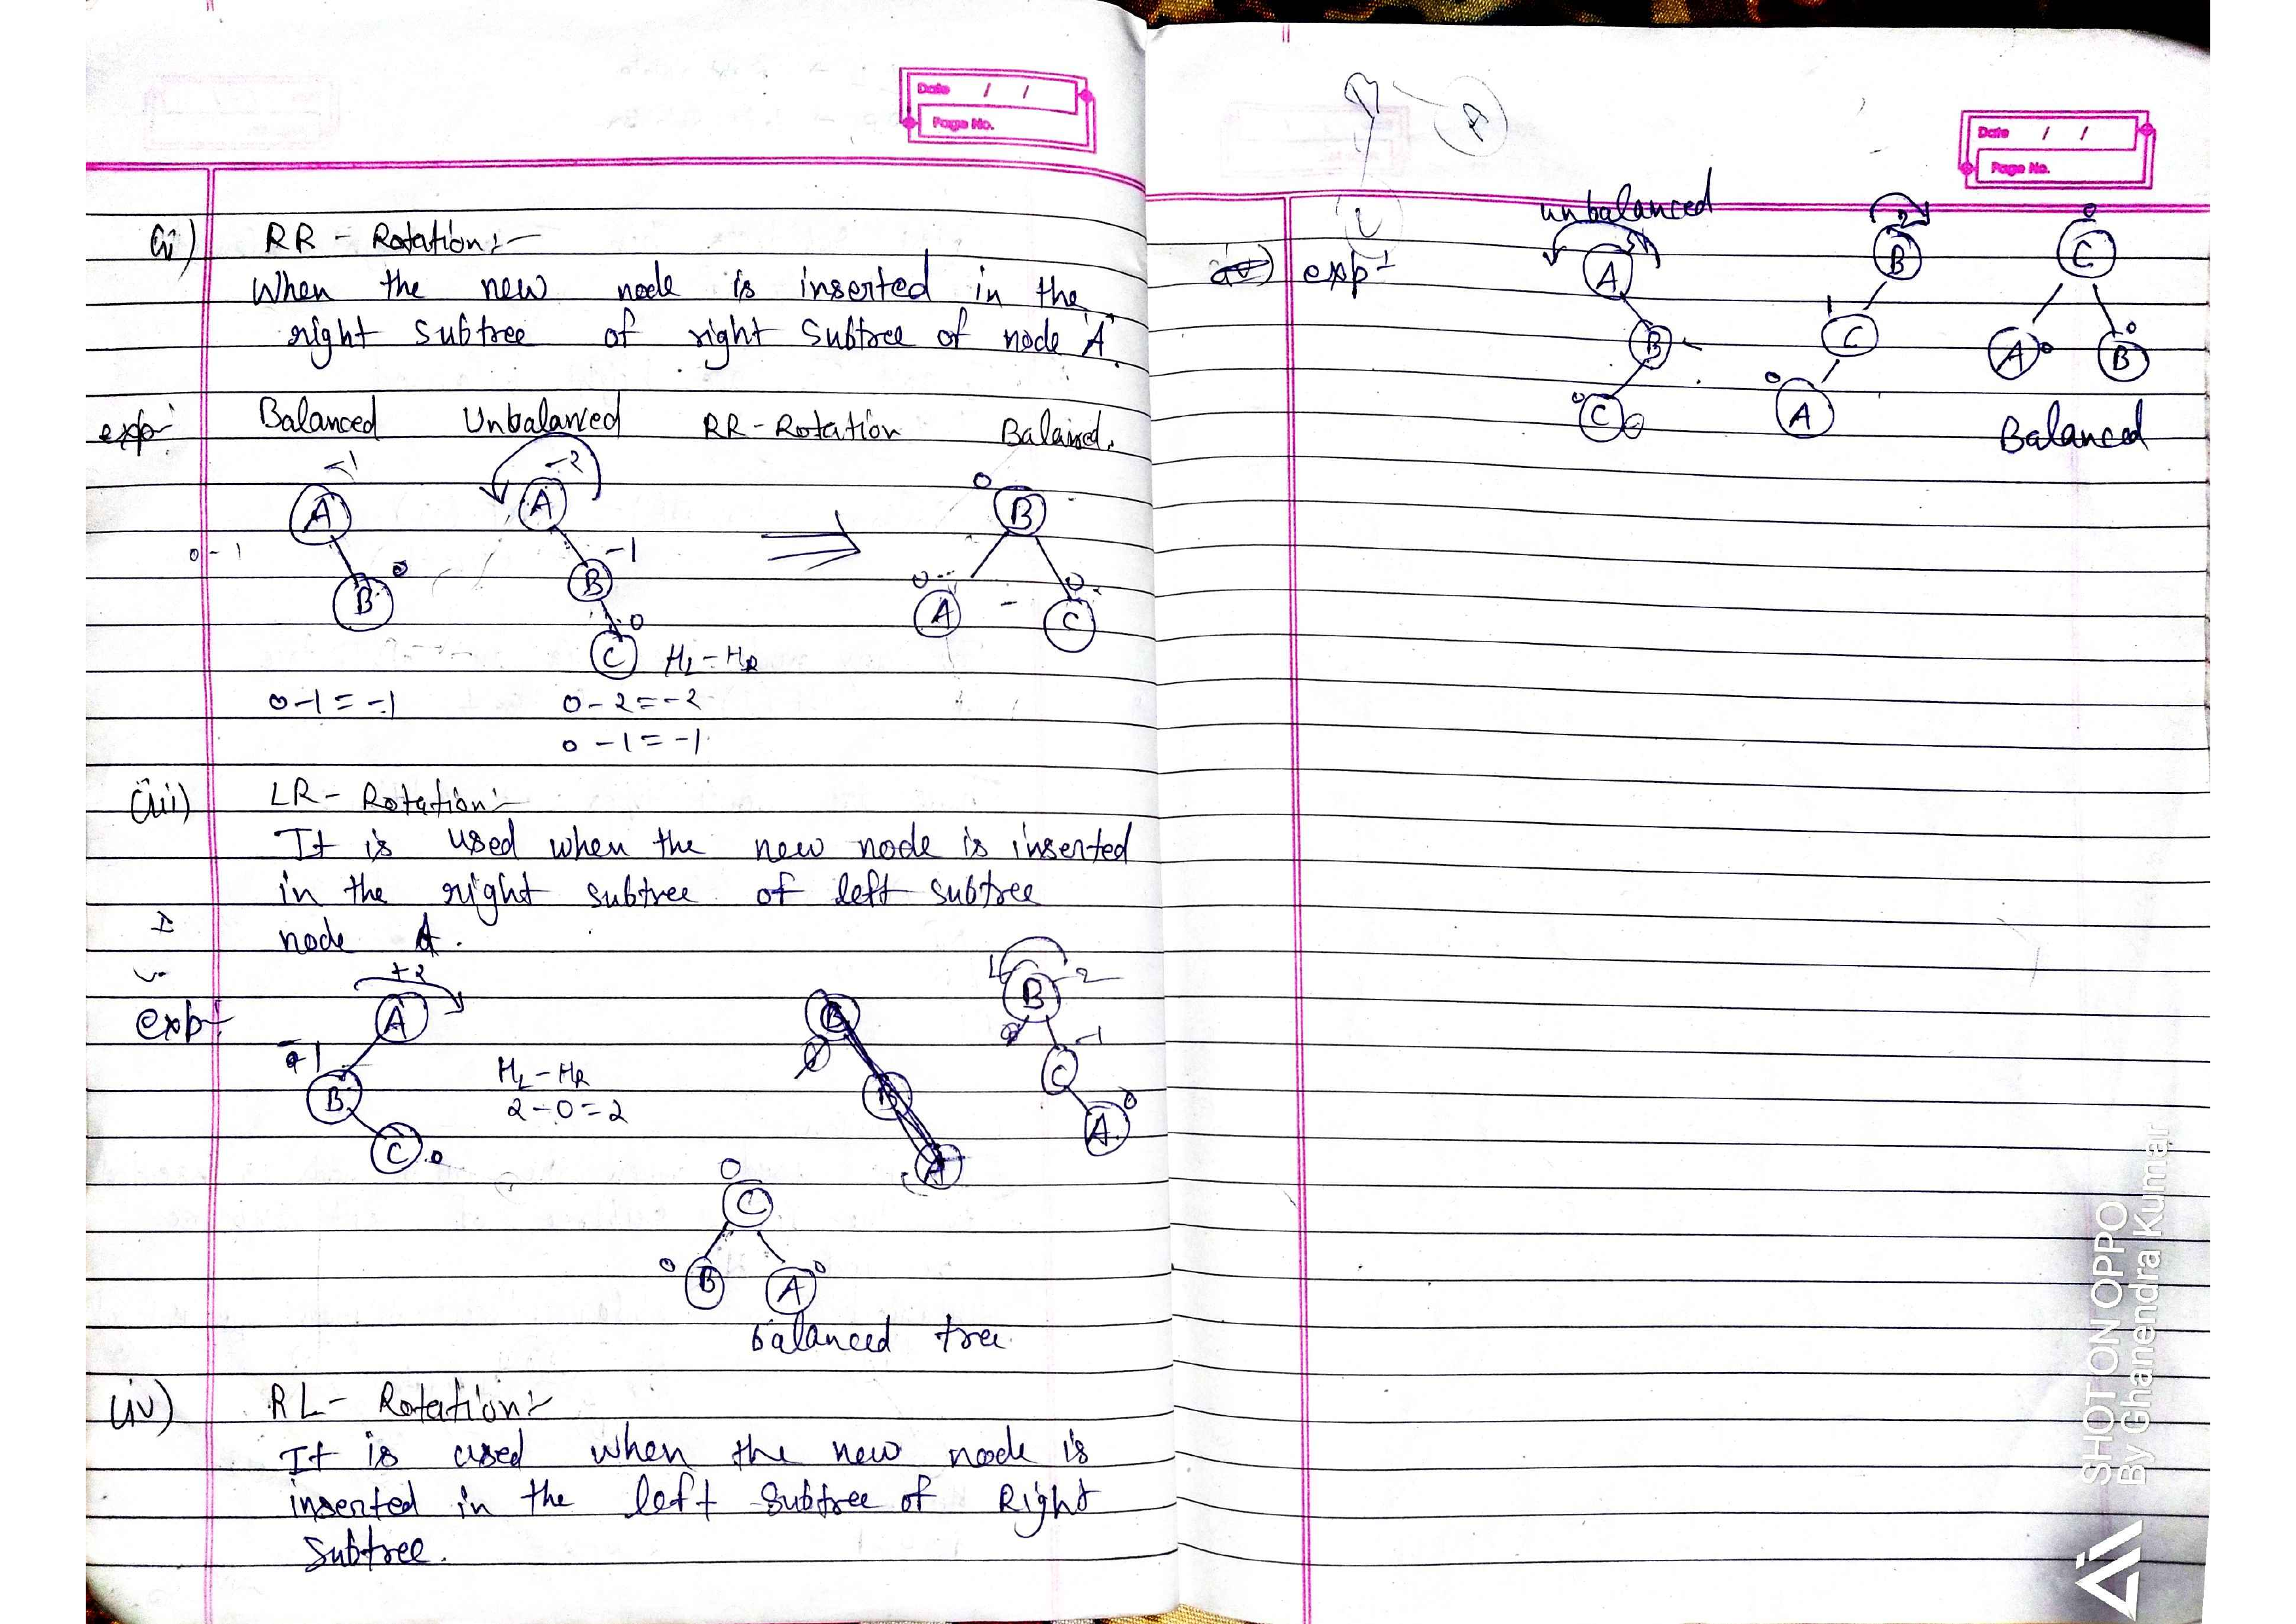 Date / /
Page No.
(ii) RR - Rotation:-
When the new node is inserted in the
right subtree of right subtree of node 'A'
exp- Balanced Unbalanced RR-Rotation Balanced.
-1 -2 0
A A B
0-1 -1
B 0 B 0 A 0 C
0
C HL-HR
0-1=-1 0-2=-2
0-1=-1
(iii) LR- Rotation:-
It is used when the new node is inserted
in the right subtree of left subtree
node A.
exp- +2 A
B
C 0
HL-HR
2-0=2
B
B
A
B -2
C -1
A 0
0
C
0 B A 0
balanced tree
(iv) RL- Rotation:-
It is used when the new node is
inserted in the left subtree of Right
Subtree.
A
Date / /
Page No.
unbalanced
exp-
A
B
C
2
B
1 C
0 A
0
C
A 0 B 0
Balanced
SHOT ON OPPO
By Ghanendra Kumar